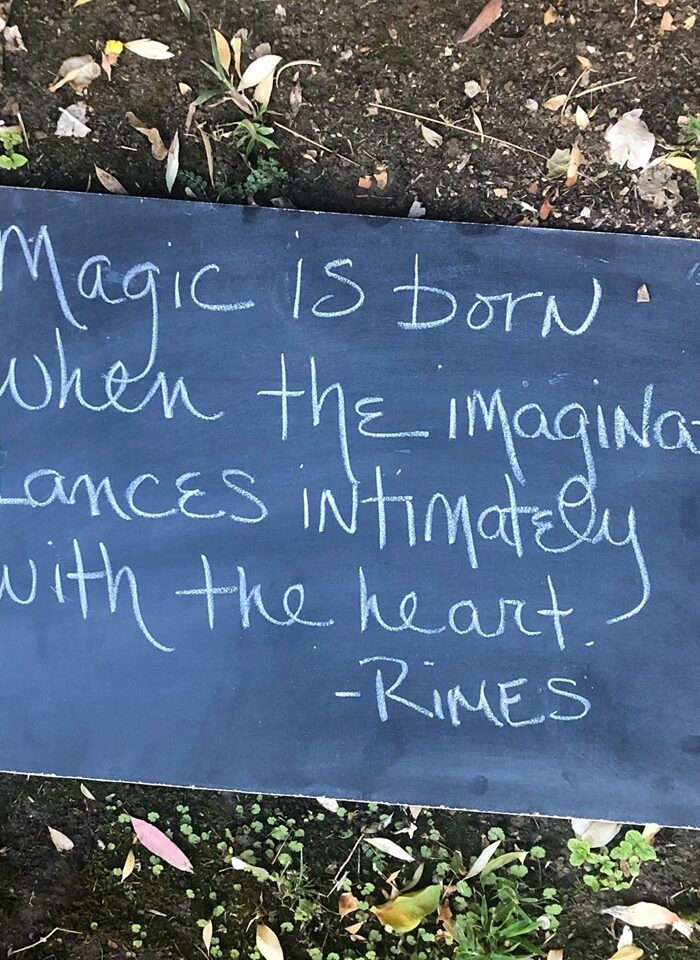 Magic is born
when the imagina
ances intimately
with the heart.
-RIMES